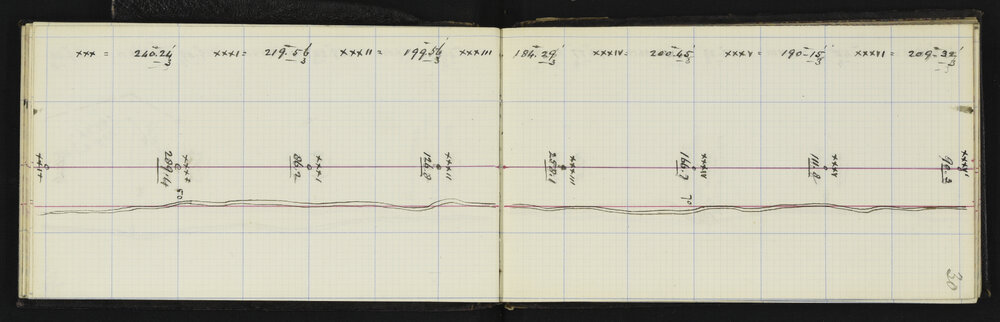 xxx = 240.26' xxxI = 219.56' xxxII = 199.56' xxxIII 184.29' xxxIV = 200.45' xxxV = 190-15' xxxVI = 209-32'
3 3 3 3 3 3 3
xxxI xxxII xxxIII xxxIV xxxV xxxVI
289.4 86.2 126.8 258.1 166.2 111.8 90.3
50 70
30